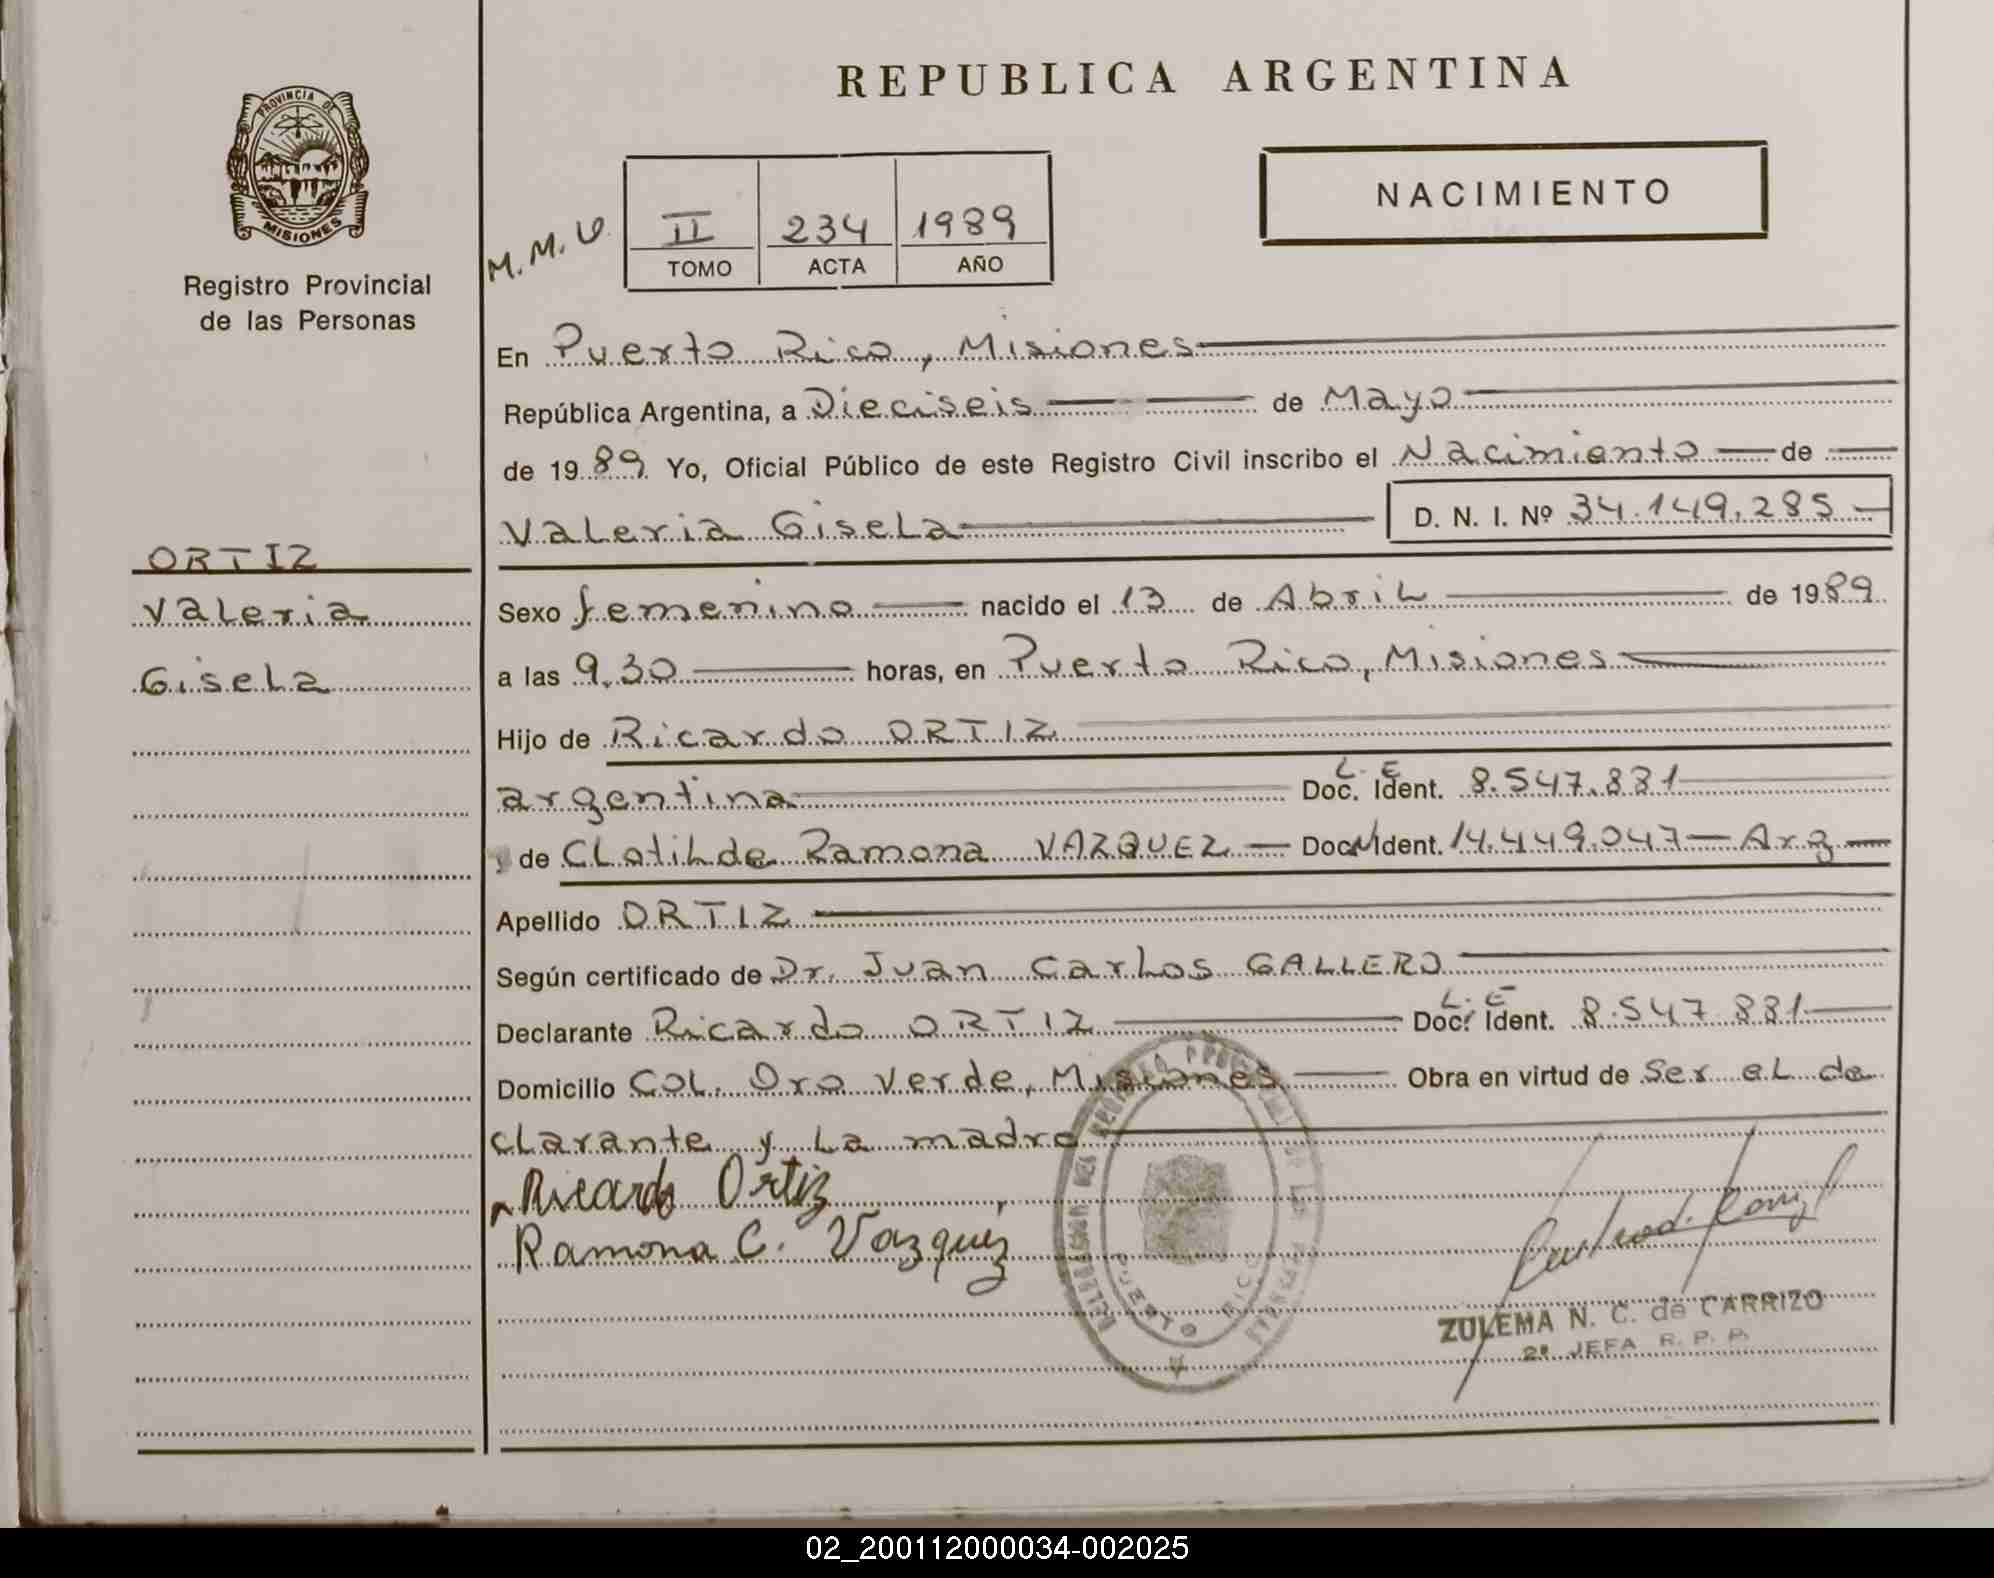 REPUBLICA ARGENTINA
PROVINCIA DE
MISIONES
Registro Provincial
de las Personas
NACIMIENTO
M. M. V.
II 234 1989
TOMO ACTA AÑO
En Puerto Rico, Misiones
República Argentina, a Dieciseis de Mayo
de 19 89 Yo, Oficial Público de este Registro Civil inscribo el Nacimiento de
Valeria Gisela D. N. I. Nº 34.149.285
ORTIZ
Valeria
Gisela
Sexo femenino nacido el 13 de Abril de 1989
a las 9.30 horas, en Puerto Rico, Misiones
Hijo de Ricardo ORTIZ
argentina Doc. Ident. L. E 8.547.881
y de Clotilde Ramona VAZQUEZ Doc. Ident. 14.449.047 Arg
Apellido ORTIZ
Según certificado de Dr. Juan Carlos GALLERO
Declarante Ricardo ORTIZ Doc. Ident. L. E 8.547.881
Domicilio Col. Oro Verde, Misiones Obra en virtud de Ser el de
clarante y la madre
Ricardo Ortiz
Ramona C. Vazquez
PUERTO RICO
ZULEMA N. C. de CARRIZO
2º JEFA R. P. P.
02_200112000034-002025